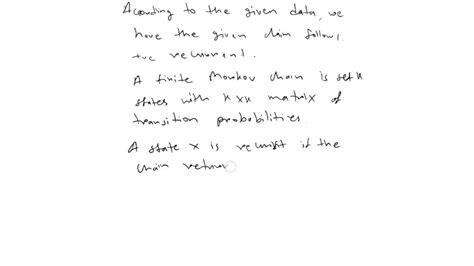 According to the given data, we
have the given claim follows
+ve recurrent.
A finite Morokov chain is set k
states with k x k matrix of
transition probabilities
A state x is recurst if the
chain retur